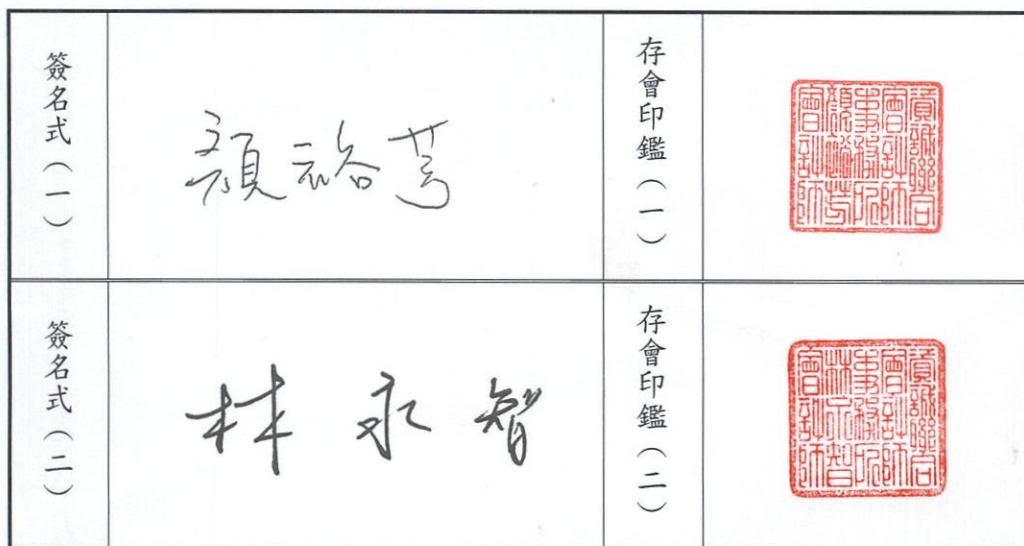 簽名式（一）
顏裕芳
存會印鑑（一）
資誠聯合
會計師
事務所
顏裕芳
會計師
簽名式（二）
林永智
存會印鑑（二）
資誠聯合
會計師
事務所
林永智
會計師